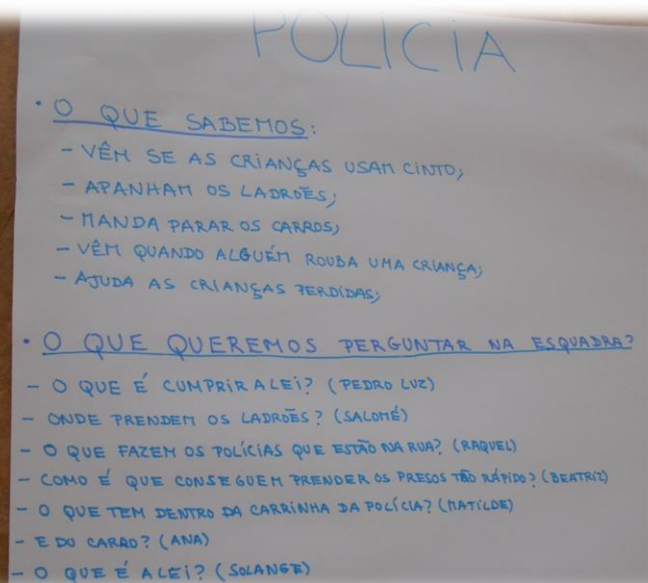 POLÍCIA
• O QUE SABEMOS:
- VÊM SE AS CRIANÇAS USAM CINTO;
- APANHAM OS LADRÕES;
- MANDA PARAR OS CARROS;
- VÊM QUANDO ALGUÉM ROUBA UMA CRIANÇA;
- AJUDA AS CRIANÇAS PERDIDAS;
• O QUE QUEREMOS PERGUNTAR NA ESQUADRA?
- O QUE É CUMPRIR A LEI? (PEDRO LUZ)
- ONDE PRENDEM OS LADRÕES? (SALOMÉ)
- O QUE FAZEM OS POLÍCIAS QUE ESTÃO NA RUA? (RAQUEL)
- COMO É QUE CONSEGUEM PRENDER OS PRESOS TÃO RÁPIDO? (BEATRIZ)
- O QUE TEM DENTRO DA CARRINHA DA POLÍCIA? (MATILDE)
- E DO CARRO? (ANA)
- O QUE É A LEI? (SOLANGE)